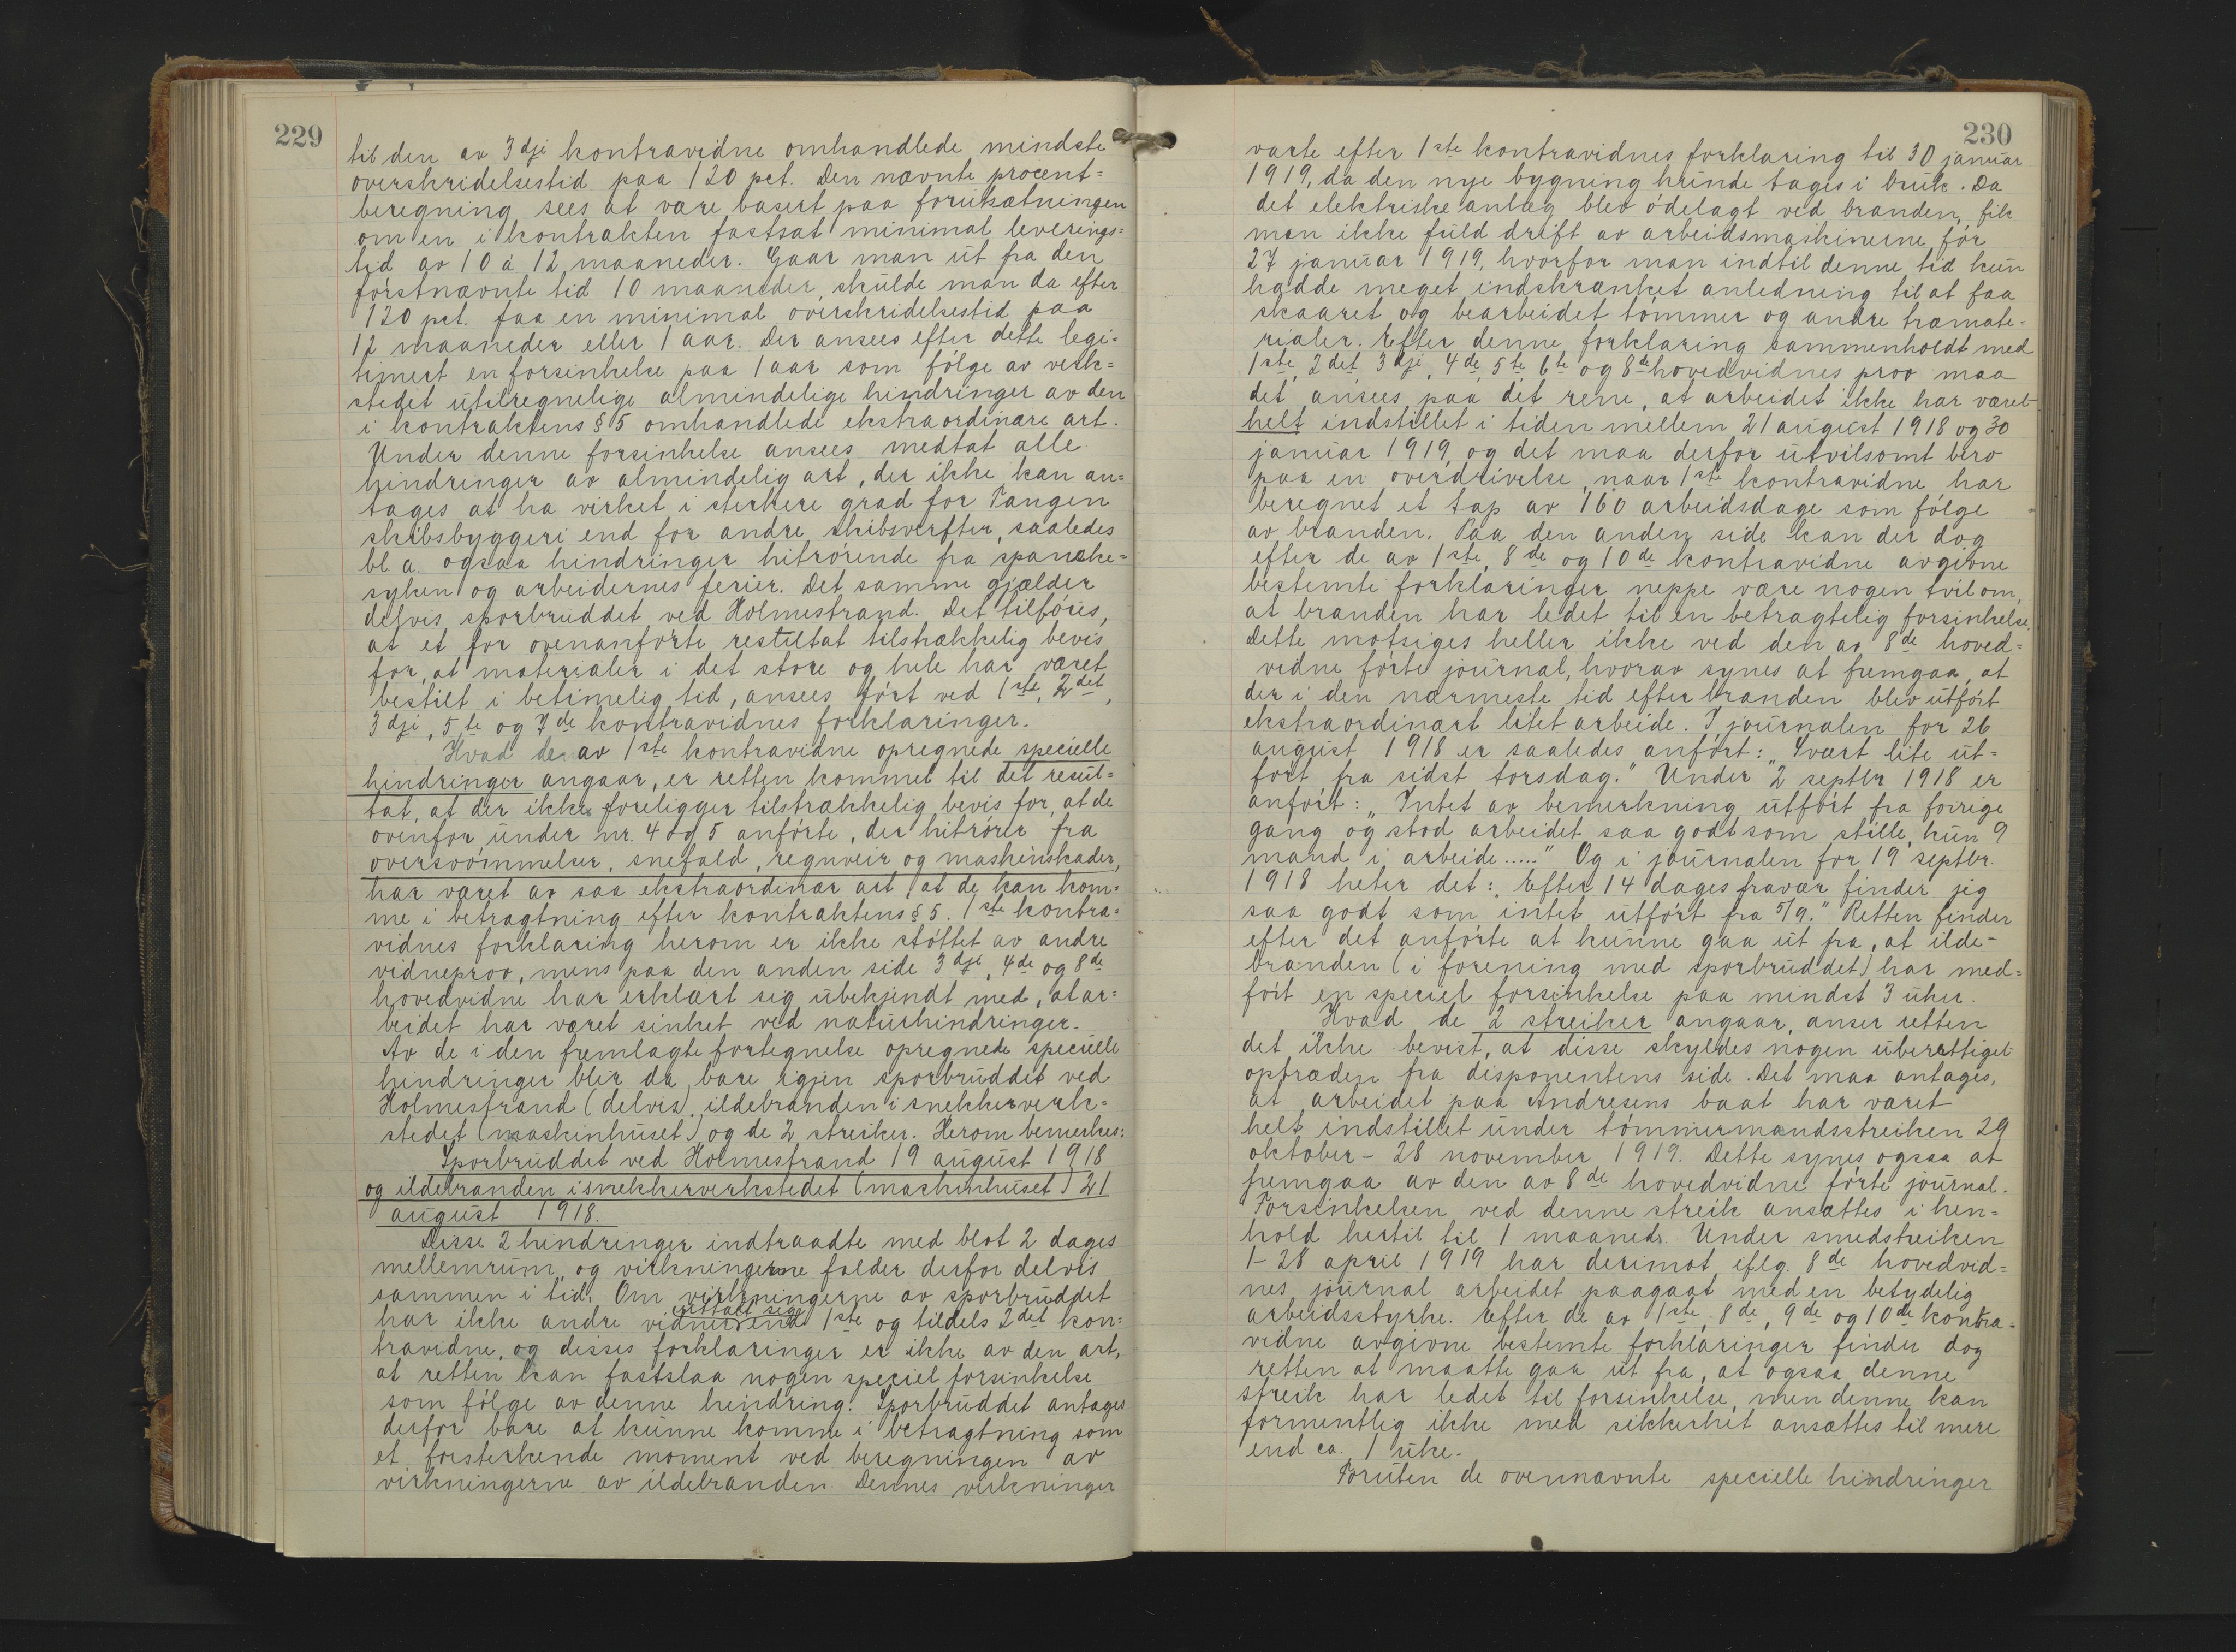 229
til den av 3dje kontravidne omhandlede mindste
overskridelsestid paa 120 pct. Den nævnte procent=
beregning sees at være basert paa forutsætningen
om en i kontrakten fastsat minimal leverings=
tid av 10 à 12 maaneder. Gaar man ut fra den
førstnævnte tid 10 maaneder, skulde man da efter
120 pct. faa en minimal overskridelsestid paa
12 maaneder eller 1 aar. Der ansees efter dette legi=
timert en forsinkelse paa 1 aar som følge av verk=
stedet utilregnelige almindelige hindringer av den
i kontraktens § 5 omhandlede ekstraordinære art.
Under denne forsinkelse ansees medtat alle
hindringer av almindelig art, der ikke kan an=
tages at ha virket i sterkere grad for Tangen
skibsbyggeri end for andre skibsverfter, saaledes
bl. a. ogsaa hindringer hitrørende fra spanske=
syken og arbeidernes ferier. Det samme gjælder
delvis sporbruddet ved Holmestrand. Det tilføies,
at et for ovenanførte resultat tilstrækkelig bevis
for, at materialer i det store og hele har været
bestilt i betimelig tid, ansees ført ved 1ste, 2det,
3dje, 5te og 7de kontravidnes forklaringer.
Hvad de av 1ste kontravidne opregnede specielle
hindringer angaar, er retten kommet til det resul=
tat, at der ikke foreligger tilstrækkelig bevis for, at de
ovenfor under nr. 4 og 5 anførte, der hitrører fra
oversvømmelser, snefald, regnveir og maskinskader,
har været av saa ekstraordinær art at de kan kom=
me i betragtning efter kontraktens § 5. 1ste kontra=
vidnes forklaring herom er ikke støttet av andre
vidneprov, mens paa den anden side 3dje, 4de og 8de
hovedvidne har erklært sig ubekjendt med, at ar=
beidet har været sinket ved naturhindringer.
Av de i den fremlagte fortegnelse opregnede specielle
hindringer blir da bare igjen sporbruddet ved
Holmestrand (delvis), ildebranden i snekkerverk=
stedet (maskinhuset) og de 2 streiker. Herom bemerkes:
Sporbruddet ved Holmestrand 19 august 1918
og ildebranden i snekkerverkstedet (maskinhuset) 21
august 1918.
Disse 2 hindringer indtraadte med blot 2 dages
mellemrum, og virkningerne falder derfor delvis
sammen i tid. Om virkningerne av sporbruddet
uttalt sig
har ikke andre vidner end 1ste og tildels 2det kon=
travidne, og disses forklaringer er ikke av den art,
at retten kan fastslaa nogen speciel forsinkelse
som følge av denne hindring. Sporbruddet antages
derfor bare at kunne komme i betragtning som
et forsterkende moment ved beregningen av
virkningerne av ildebranden. Dennes virkninger
230
varte efter 1ste kontravidnes forklaring til 30 januar
1919, da den nye bygning kunde tages i bruk. Da
det elektriske anlæg blev ødelagt ved branden, fik
man ikke fuld drift av arbeidsmaskinerne før
27 januar 1919, hvorfor man indtil denne tid kun
hadde meget indskrænket anledning til at faa
skaaret og bearbeidet tømmer og andre træmate=
rialer. Efter denne forklaring sammenholdt med
1ste, 2det, 3dje, 4de, 5te, 6te og 8de hovedvidnes prov maa
det ansees paa det rene, at arbeidet ikke har været
helt indstillet i tiden mellem 21 august 1918 og 30
januar 1919, og det maa derfor utvilsomt bero
paa en overdrivelse, naar 1ste kontravidne har
beregnet et tap av 160 arbeidsdage som følge
av branden. Paa den anden side kan der dog
efter de av 1ste, 8de og 10de kontravidne avgivne
bestemte forklaringer neppe være nogen tvil om,
at branden har ledet til en betragtelig forsinkelse.
Dette motsiges heller ikke ved den av 8de hoved=
vidne førte journal, hvorav synes at fremgaa, at
der i den nærmeste tid efter branden blev utført
ekstraordinært litet arbeide. I journalen for 26
august 1918 er saaledes anført: „Svært lite ut=
ført fra sidst torsdag." Under 2 septbr 1918 er
anført: „Intet av bemerkning utført fra forrige
gang og stod arbeidet saa godt som stille, kun 9
mand i arbeide....." Og i journalen for 19 septbr.
1918 heter det: „Efter 14 dages fravær finder jeg
saa godt som intet utført fra 5/9." Retten finder
efter det anførte at kunne gaa ut fra, at ilde=
branden (i forening med sporbruddet) har med=
ført en speciel forsinkelse paa mindst 3 uker.
Hvad de 2 streiker angaar, anser retten
det ikke bevist, at disse skyldes nogen uberettiget
optræden fra disponentens side. Det maa antages,
at arbeidet paa Andresens baat har været
helt indstillet under tømmermandsstreiken 29
oktober - 28 november 1919. Dette synes ogsaa at
fremgaa av den av 8de hovedvidne førte journal.
Forsinkelsen ved denne streik ansættes i hen=
hold hertil til 1 maaned. Under smedstreiken
1-28 april 1919 har derimot iflg. 8de hovedvid=
nes journal arbeidet paagaat med en betydelig
arbeidsstyrke. Efter de av 1ste, 8de, 9de og 10de kontra=
vidne avgivne bestemte forklaringer finder dog
retten at maatte gaa ut fra, at ogsaa denne
streik har ledet til forsinkelse, men denne kan
formentlig ikke med sikkerhet ansættes til mere
end ca. 1 uke.
Foruten de ovennævnte specielle hindringer